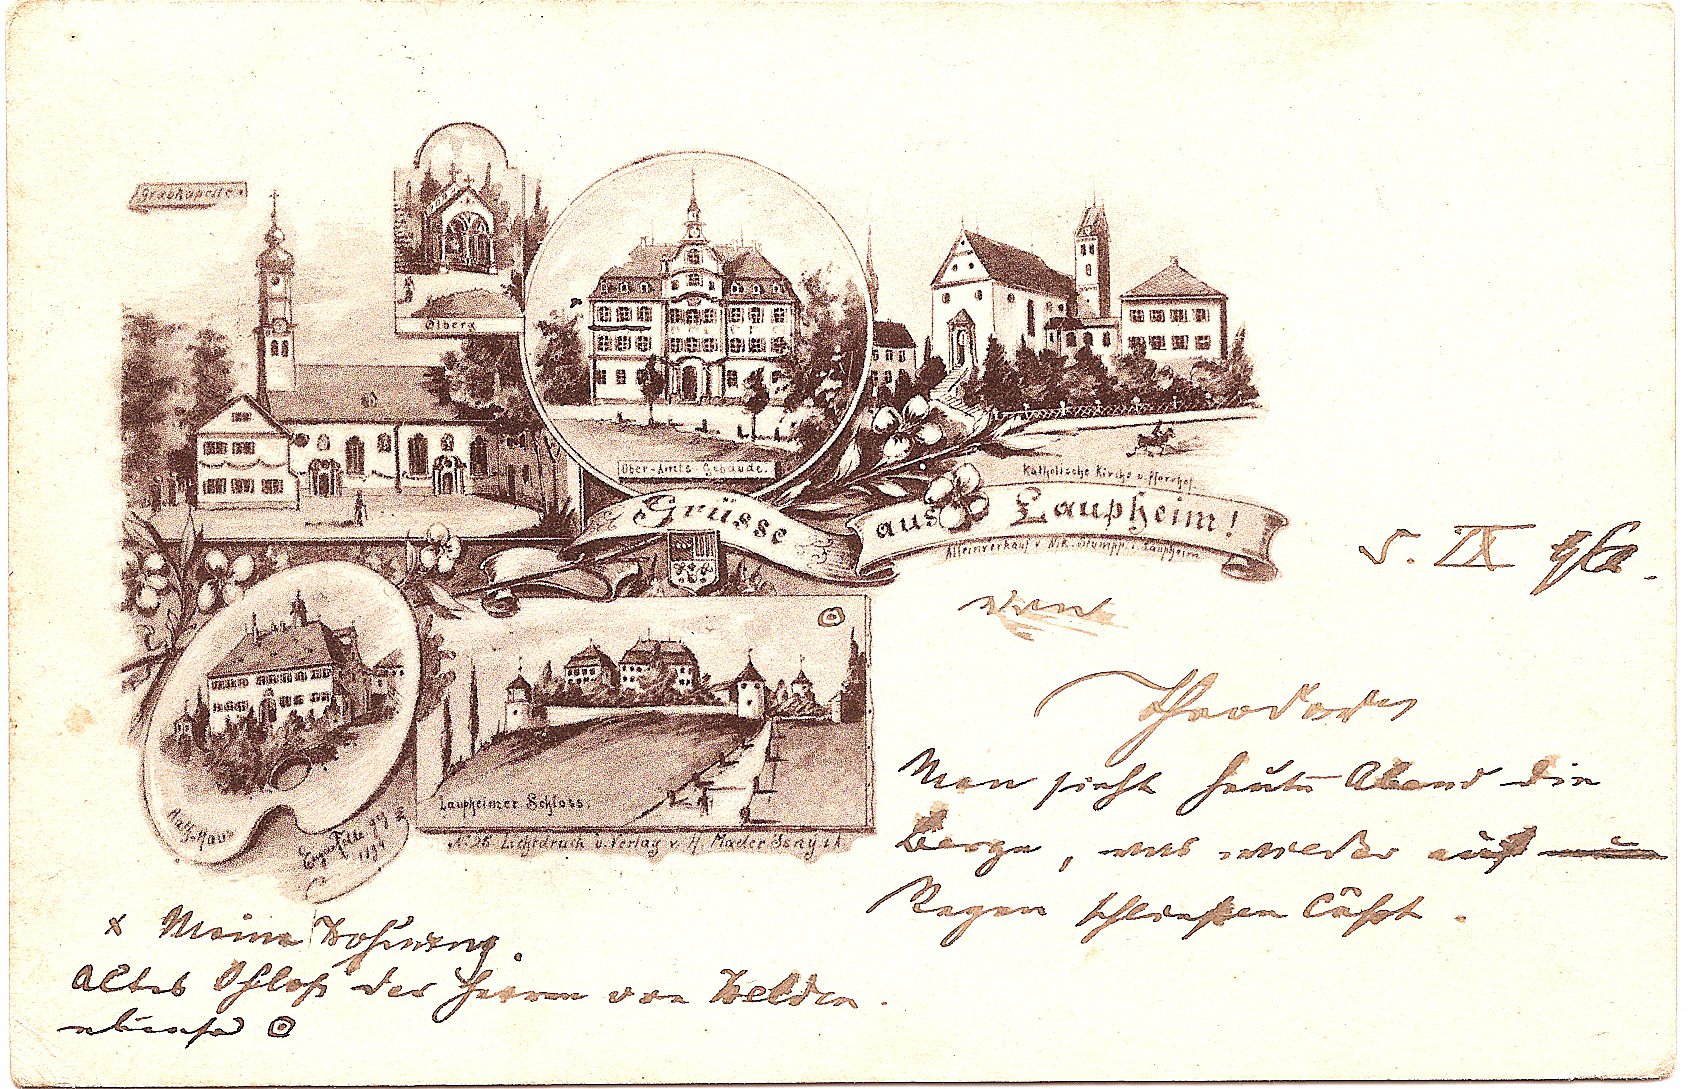 Grabkapelle.
Ölberg
Ober-Amts-Gebäude.
Katholische Kirche u. Pfarrhof.
Grüsse aus Laupheim!
Alleinverkauf v. Nik. Stumpp i. Laupheim
Rath-Haus
Eugen Felle
1894
Laupheimer Schloss.
No 26 Lichtdruck u. Verlag v. H. Mader Isny i/A
5. IX 96.
Theodor
Man sieht heute Abend die
Berge, was wieder auf
Regen schließen läßt.
x Meine Wohnung.
Altes Schloß der Herren von Welden.
ebenso